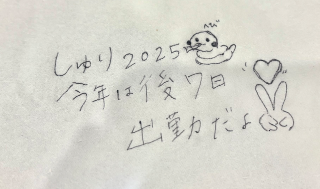 しゅり2025
今年は後7日
出勤だよ